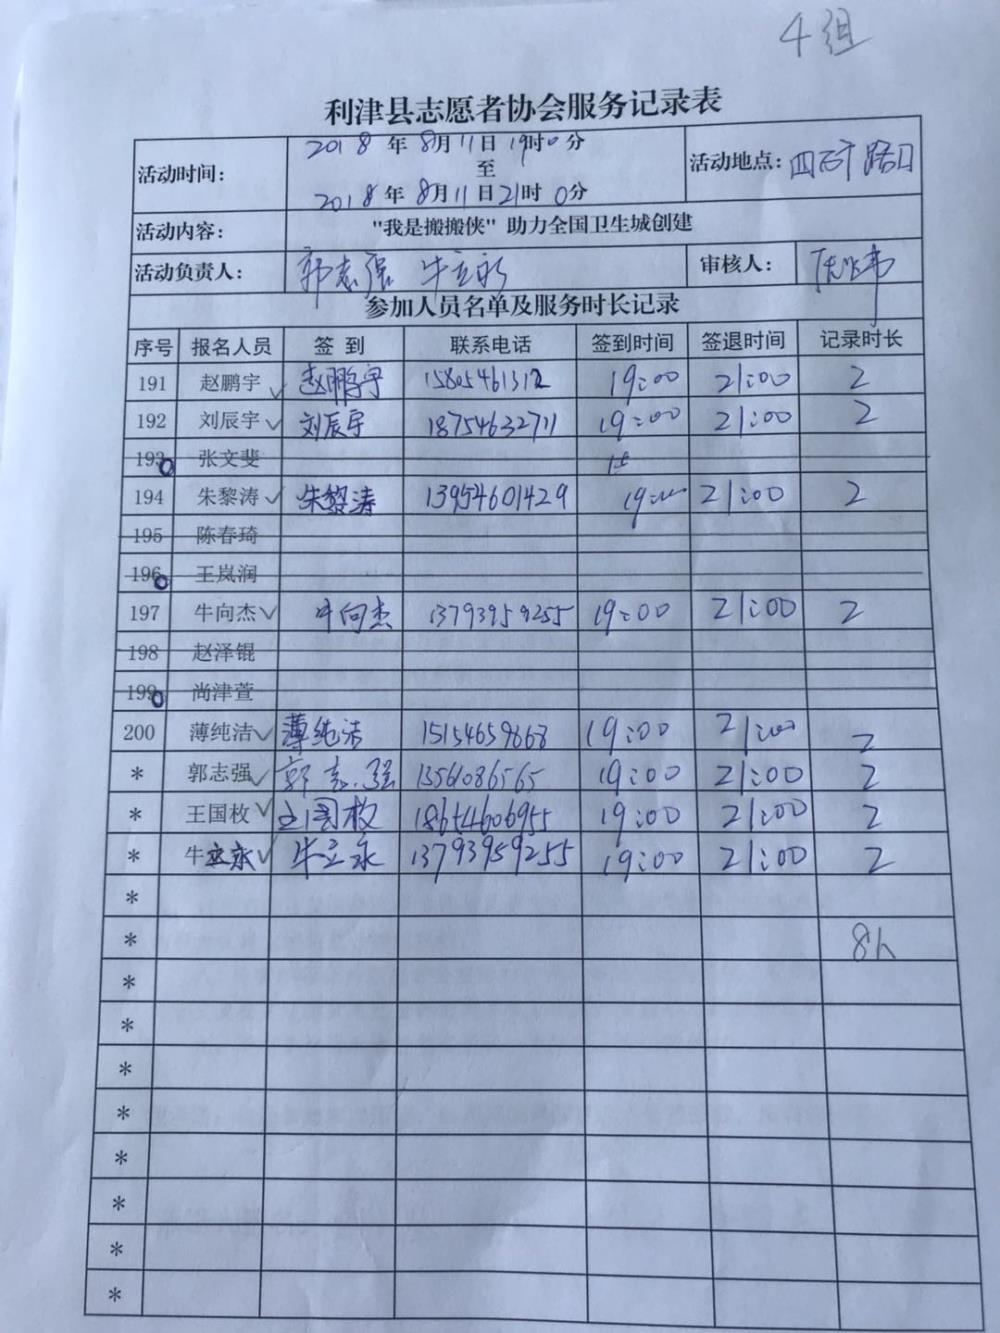 4组
利津县志愿者协会服务记录表
活动时间： 2018年8月11日19时0分 至 2018年8月11日21时0分 活动地点： 路口
活动内容： "我是搬搬侠" 助力全国卫生城创建
活动负责人： 郭志强 牛立永 审核人：
参加人员名单及服务时长记录
序号 报名人员 签 到 联系电话 签到时间 签退时间 记录时长
191 赵鹏宇 ✓ 赵鹏宇 15805461312 19:00 21:00 2
192 刘辰宇 ✓ 刘辰宇 18754632711 19:00 21:00 2
193 张文斐
194 朱黎涛 ✓ 朱黎涛 13954601429 19:00 21:00 2
195 陈春琦
196 王岚润
197 牛向杰 ✓ 牛向杰 13793959255 19:00 21:00 2
198 赵泽锟
199 尚津萱
200 薄纯洁 ✓ 薄纯洁 15154659868 19:00 21:00 2
* 郭志强 ✓ 郭志强 13561086565 19:00 21:00 2
* 王国枚 ✓ 王国枚 18654606955 19:00 21:00 2
* 牛立永 ✓ 牛立永 13793959255 19:00 21:00 2
*
* 8h
*
*
*
*
*
*
*
*